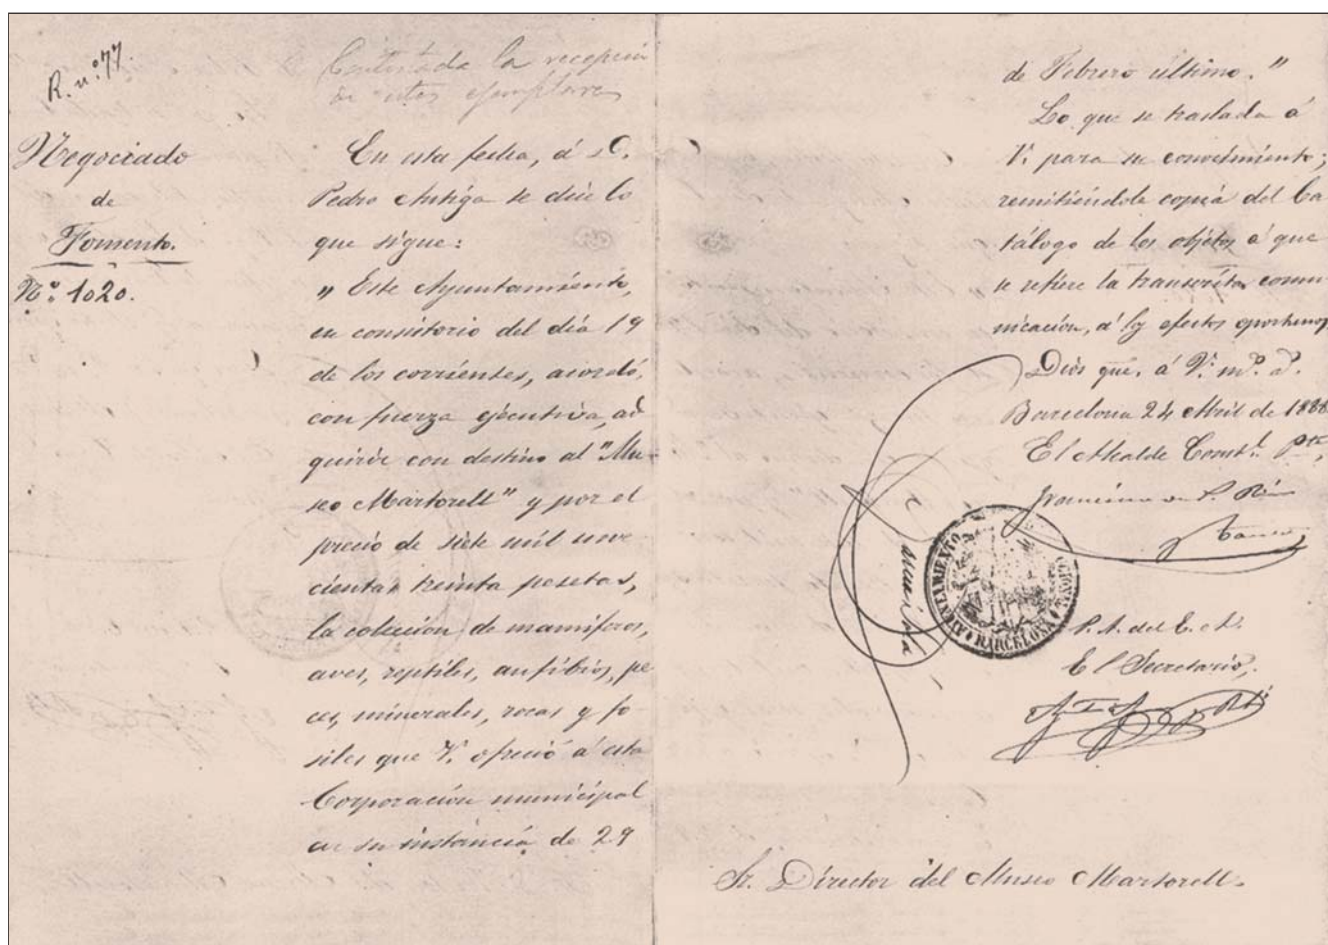 R. nº 77.
Contestada la recepción
de estos ejemplares
Negociado
de
Fomento.
Nº 1020.
En esta fecha, á D.
Pedro Antiga se dice lo
que sigue:
" Este Ayuntamiento,
en consistorio del día 19
de los corrientes, acordó,
con fuerza ejecutiva, ad
quirir con destino al "Mu-
seo Martorell" y por el
precio de siete mil nove
cientas treinta pesetas,
la colección de mamíferos,
aves, reptiles, anfibios, pe
ces, minerales, rocas y fó
siles que V. ofreció á esta
Corporación municipal
en su instancia de 29
de Febrero último. "
Lo que se traslada á
V. para su conocimiento;
remitiéndole copia del Ca
tálogo de los objetos á que
se refiere la transcrita comu
nicación, á los efectos oportunos.
Dios gue. á V. ms. as.
Barcelona 24 Abril de 1888.
El Alcalde Constl. Pte,
Francisco de P. Rius
y Taulet
AYUNTAMIENTO
BARCELONA
P. A. del E. A.
El Secretario,
Sr. Director del Museo Martorell.